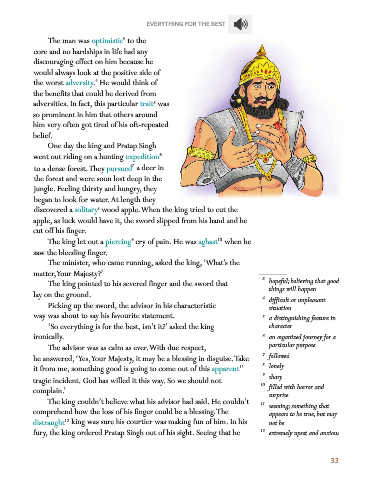 EVERYTHING FOR THE BEST
The man was optimistic³ to the
core and no hardships in life had any
discouraging effect on him because he
would always look at the positive side of
the worst adversity.⁴ He would think of
the benefits that could be derived from
adversities. In fact, this particular trait⁵ was
so prominent in him that others around
him very often got tired of his oft-repeated
belief.
One day the king and Pratap Singh
went out riding on a hunting expedition⁶
to a dense forest. They pursued⁷ a deer in
the forest and were soon lost deep in the
jungle. Feeling thirsty and hungry, they
began to look for water. At length they
discovered a solitary⁸ wood apple. When the king tried to cut the
apple, as luck would have it, the sword slipped from his hand and he
cut off his finger.
The king let out a piercing⁹ cry of pain. He was aghast¹⁰ when he
saw the bleeding finger.
The minister, who came running, asked the king, 'What's the
matter, Your Majesty?'
The king pointed to his severed finger and the sword that
lay on the ground.
Picking up the sword, the advisor in his characteristic
way was about to say his favourite statement.
'So everything is for the best, isn't it?' asked the king
ironically.
The advisor was as calm as ever. With due respect,
he answered, 'Yes, Your Majesty, it may be a blessing in disguise. Take
it from me, something good is going to come out of this apparent¹¹
tragic incident. God has willed it this way. So we should not
complain.'
The king couldn't believe what his advisor had said. He couldn't
comprehend how the loss of his finger could be a blessing. The
distraught¹² king was sure his courtier was making fun of him. In his
fury, the king ordered Pratap Singh out of his sight. Seeing that he
³ hopeful; believing that good
things will happen
⁴ difficult or unpleasant
situation
⁵ a distinguishing feature in
character
⁶ an organized journey for a
particular purpose
⁷ followed
⁸ lonely
⁹ sharp
¹⁰ filled with horror and
surprise
¹¹ seeming; something that
appears to be true, but may
not be
¹² extremely upset and anxious
33